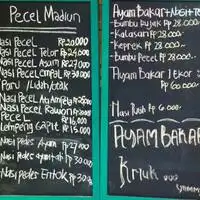 Pecel Madiun
Nasi Pecel Rp 20.000
Nasi Pecel Telor Rp 25.000
Nasi Pecel Ayam Rp 27.000
Nasi Pecel Empal Rp 30.000
Paru / Lidah / otak
Nasi Pecel
Nasi Pecel Rawon
Pecel Rp 16.000
Lempeng Gapit Rp 15.000
Nasi Pedes Ayam Rp 27.000
Nasi Pedes Rp 30.000
Nasi Pedes Entok Rp 30
Ayam Bakar + Nasi +
- Bumbu Rujak Rp 28.000
- Kalasan Rp 28.000
- Keprek Rp 28.000
- Bumbu Pecel Rp 28.000
Ayam Bakar 1 Ekor
Rp 60.000
Nasi Putih Rp 6.000
AYAM BAKAR
Kriuk ...